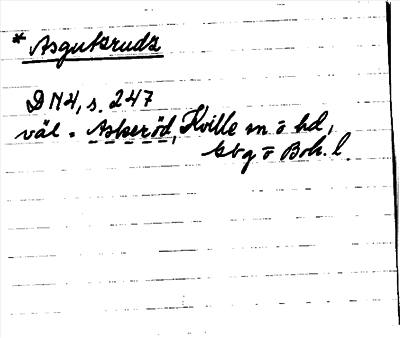 * Asgutsrudz
DN4, s. 247
väl = Askeröd, Kville sn o hd,
Gbg o Boh. l.